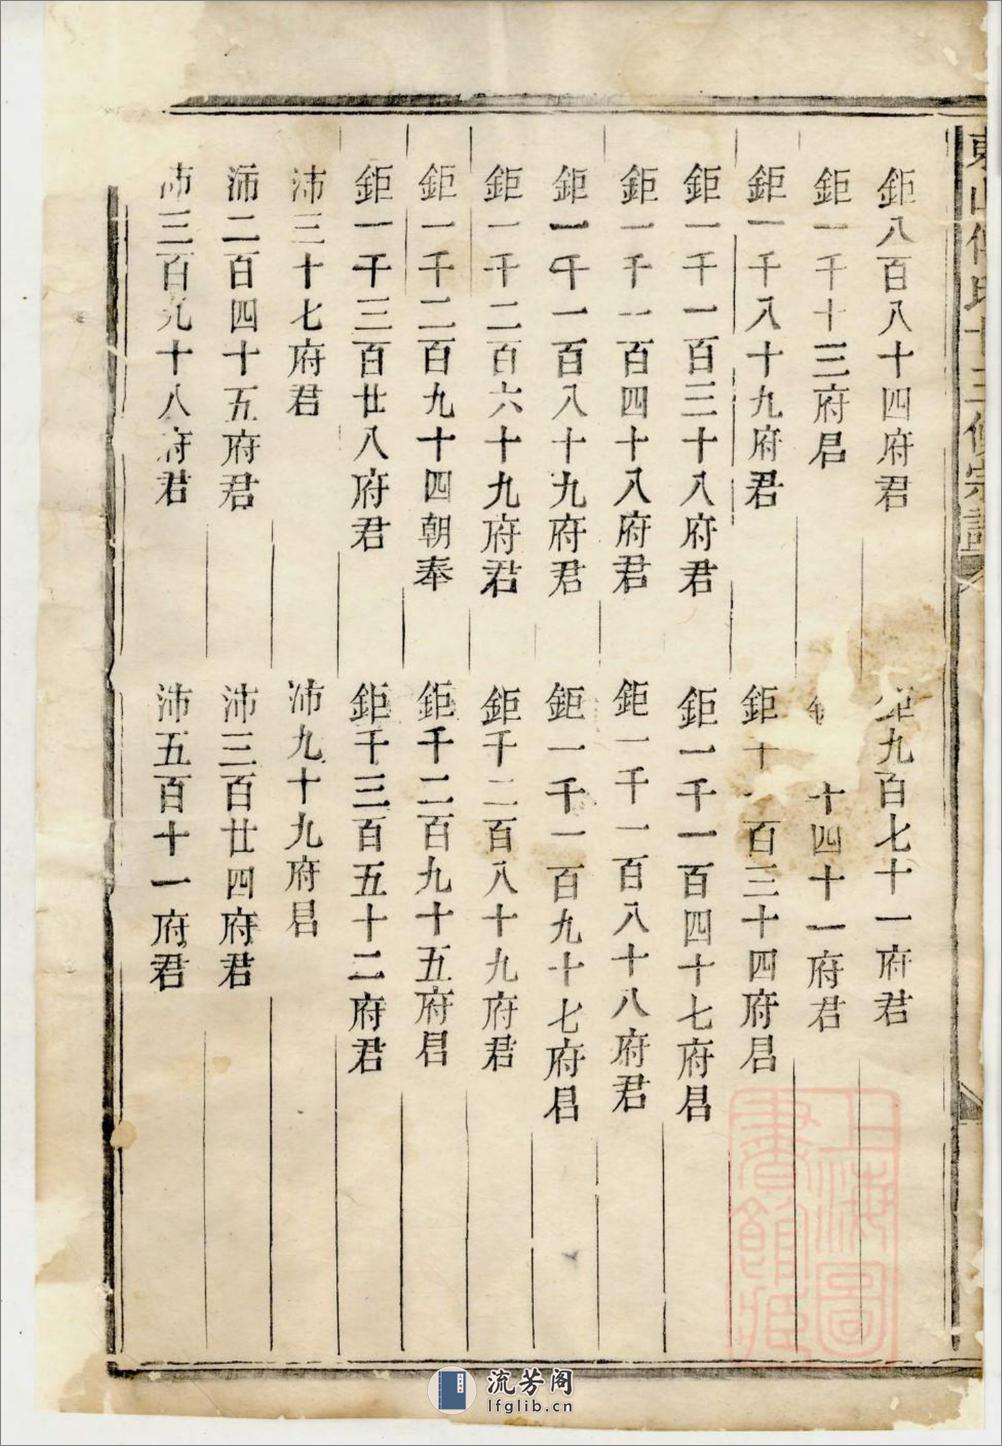 東山傅氏十三修宗譜
鉅八百八十四府君 鉅九百七十一府君
鉅一千十三府君 千四十一府君
鉅一千八十九府君 鉅千一百三十四府君
鉅一千一百三十八府君 鉅一千一百四十七府君
鉅一千一百四十八府君 鉅一千一百八十八府君
鉅一千一百八十九府君 鉅一千一百九十七府君
鉅一千二百六十九府君 鉅千二百八十九府君
鉅一千二百九十四朝奉 鉅千二百九十五府君
鉅一千三百廿八府君 鉅千三百五十二府君
沛三十七府君 沛九十九府君
沛二百四十五府君 沛三百廿四府君
沛三百九十八府君 沛五百十一府君
上海圖書館藏
流芳阁
lfglib.cn